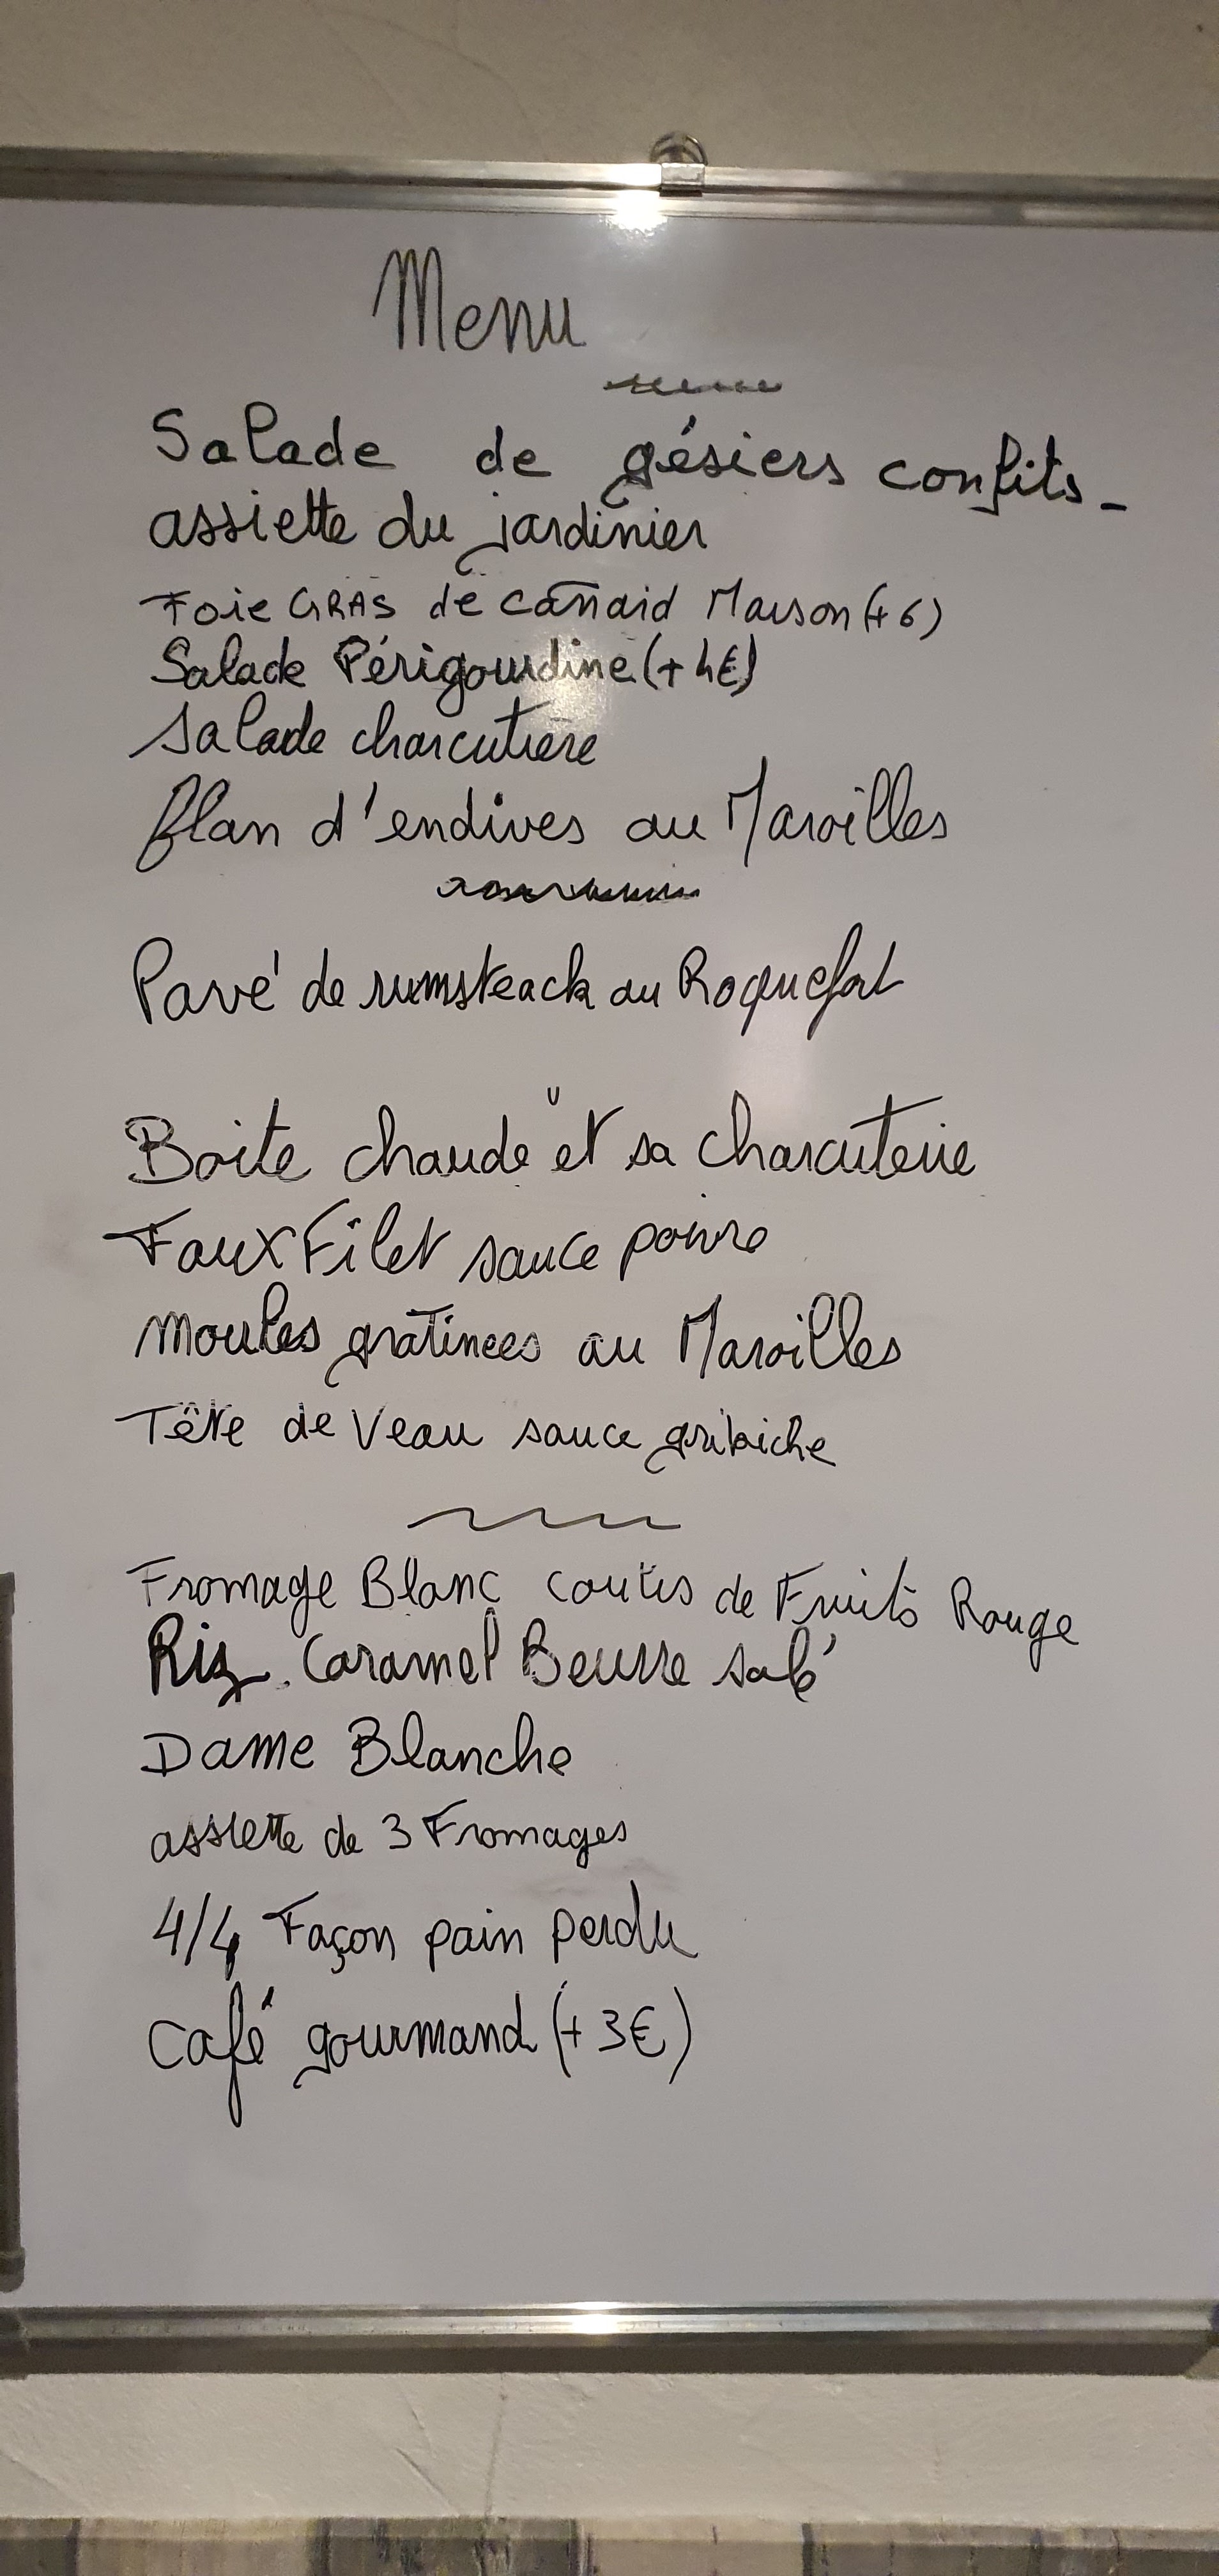 Menu
Salade de gésiers confits -
assiette du jardinier
Foie GRAS de canard Maison (+6)
Salade Périgourdine (+4€)
Salade charcutière
flan d'endives au Maroilles
Pavé de rumsteack au Roquefort
Boite chaude et sa charcuterie
Faux Filet sauce poivre
Moules gratinees au Maroilles
Tête de Veau sauce gribiche
Fromage Blanc coulis de Fruits Rouge
Riz. Caramel Beurre salé
Dame Blanche
assiette de 3 Fromages
4/4 Façon pain perdu
Café gourmand (+3€)